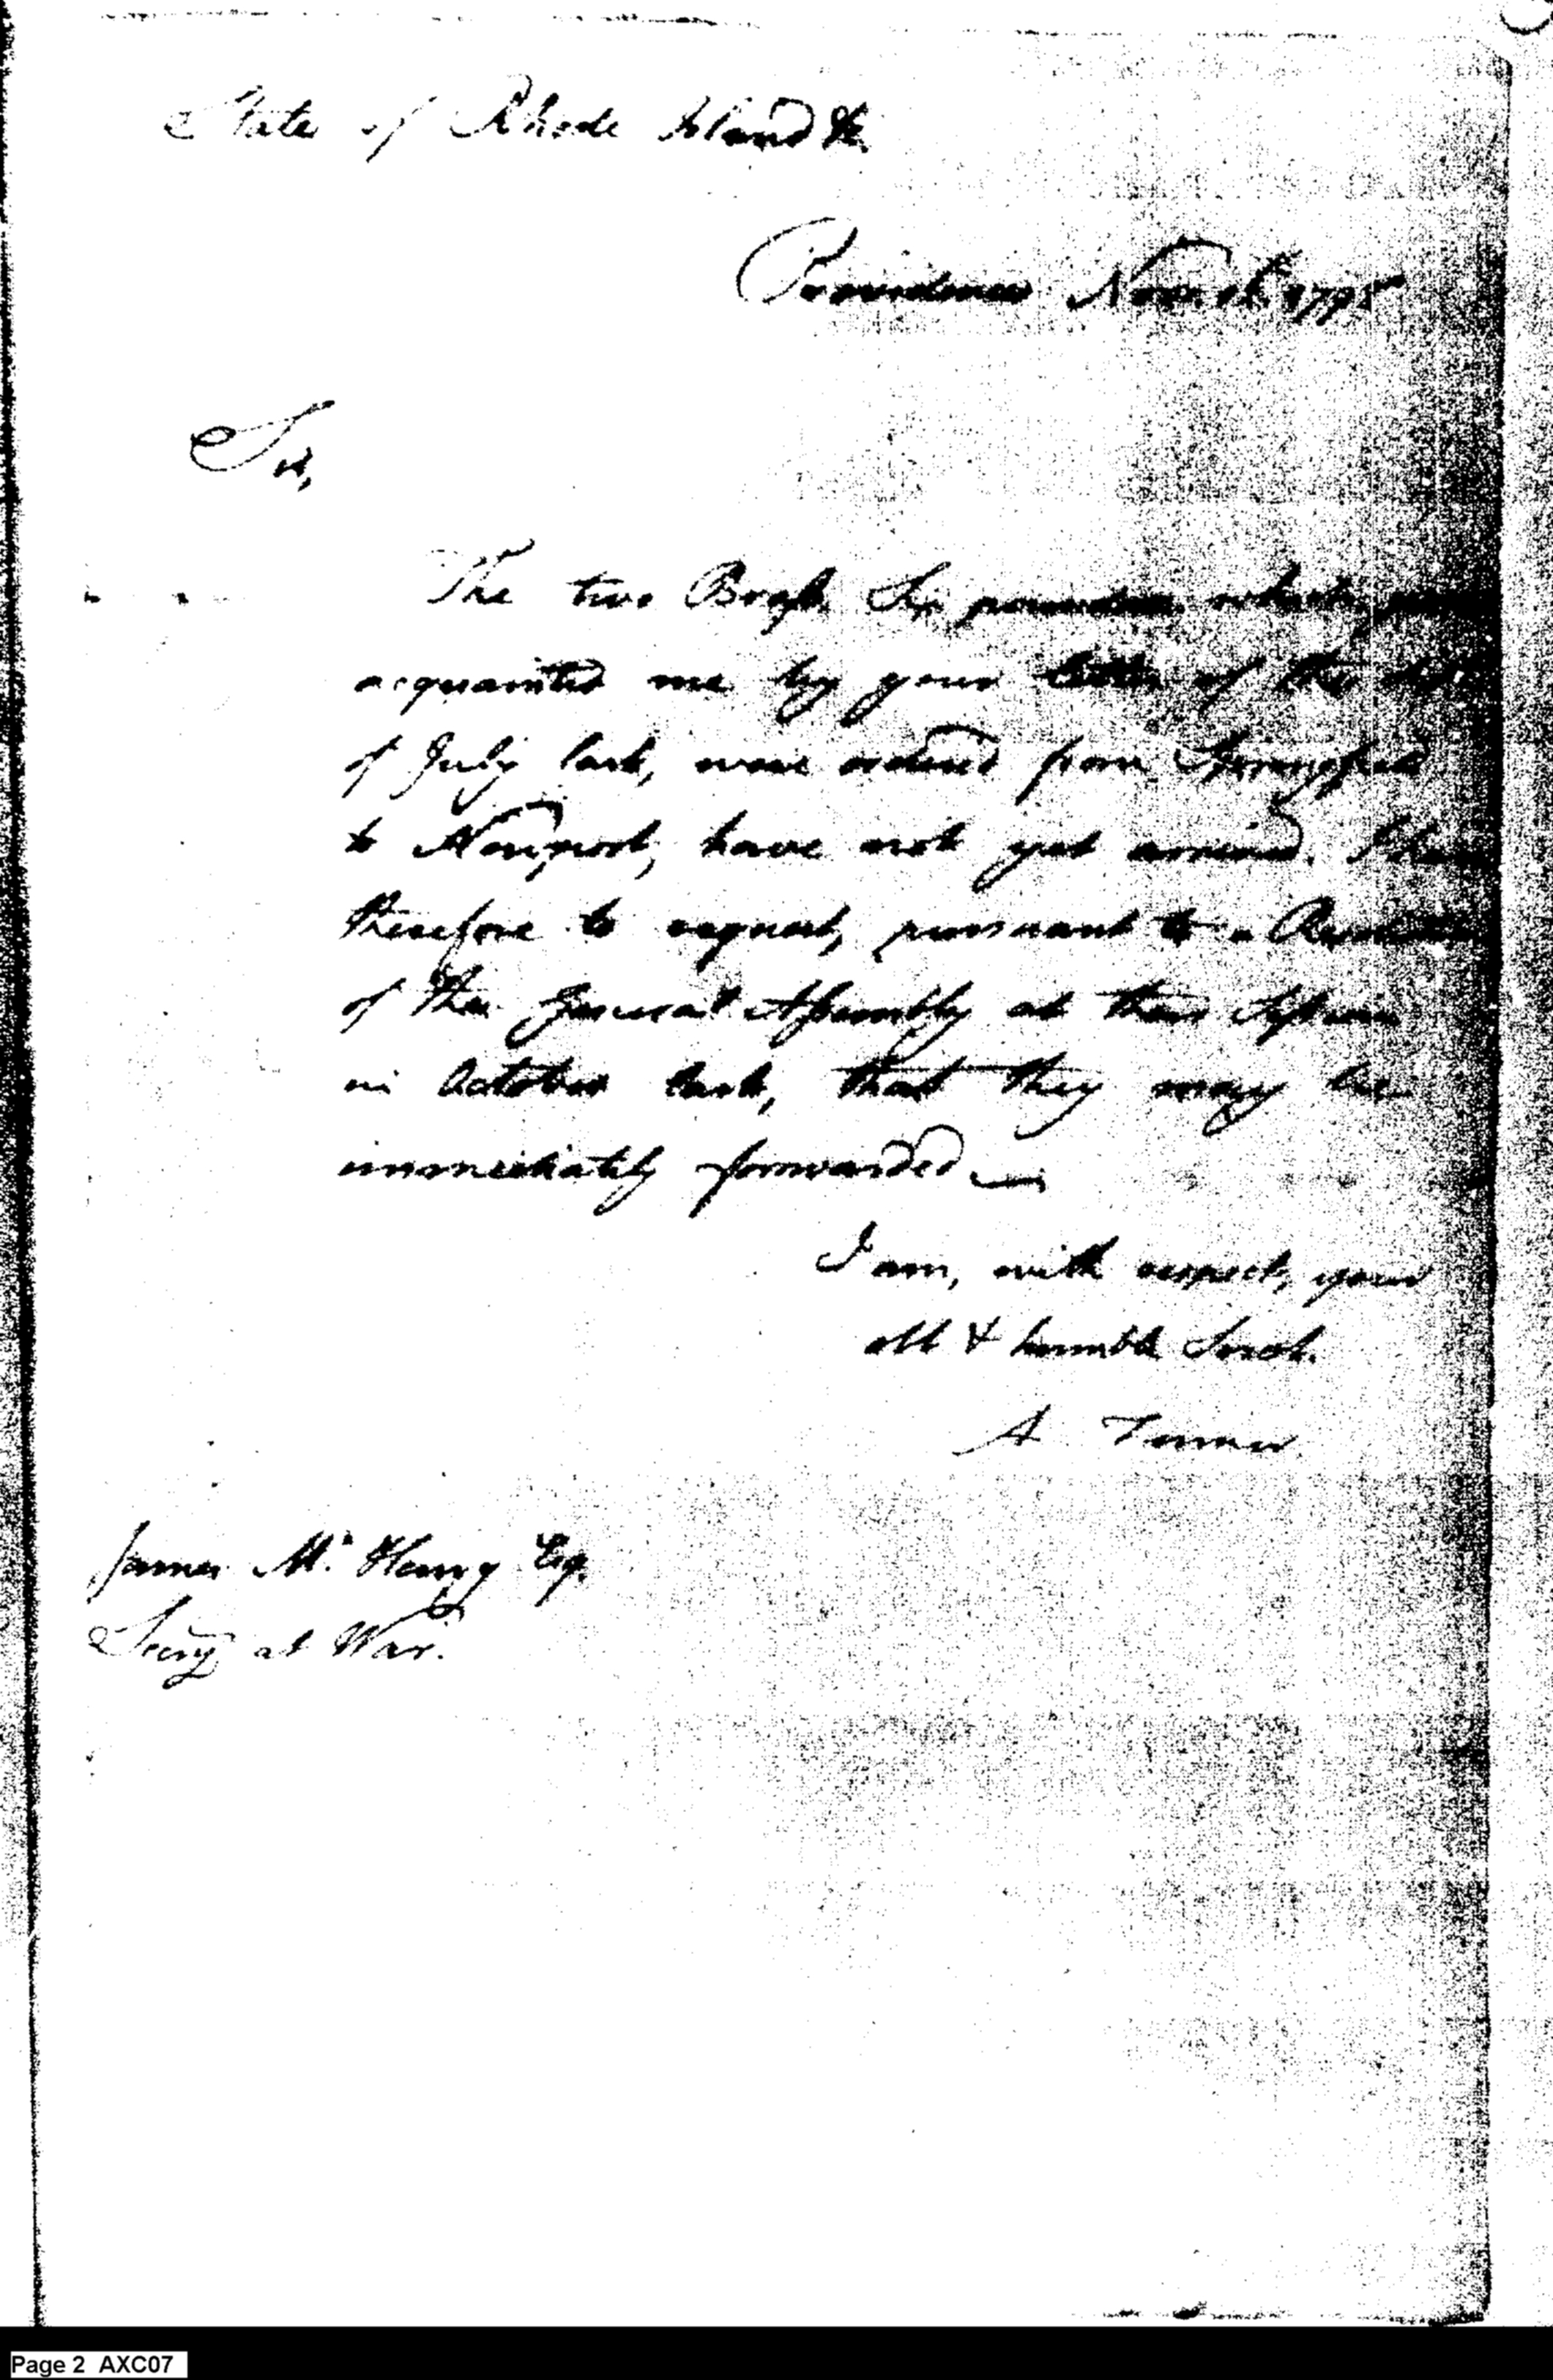 State of Rhode Island &c.
Providence Nov. 1798
Sir,
The two Brass Six pounders which you
acquainted me by your letter of the
of July last, were ordered from Springfield
to Newport, have not yet arrived. I have
therefore to request, pursuant to a Resolution
of the General Assembly at their Session
in October last, that they may be
immediately forwarded
I am, with respect, your
obt & humble Servt.
A Fenner
James McHenry Esq.
Secry at War.
Page 2 AXC07